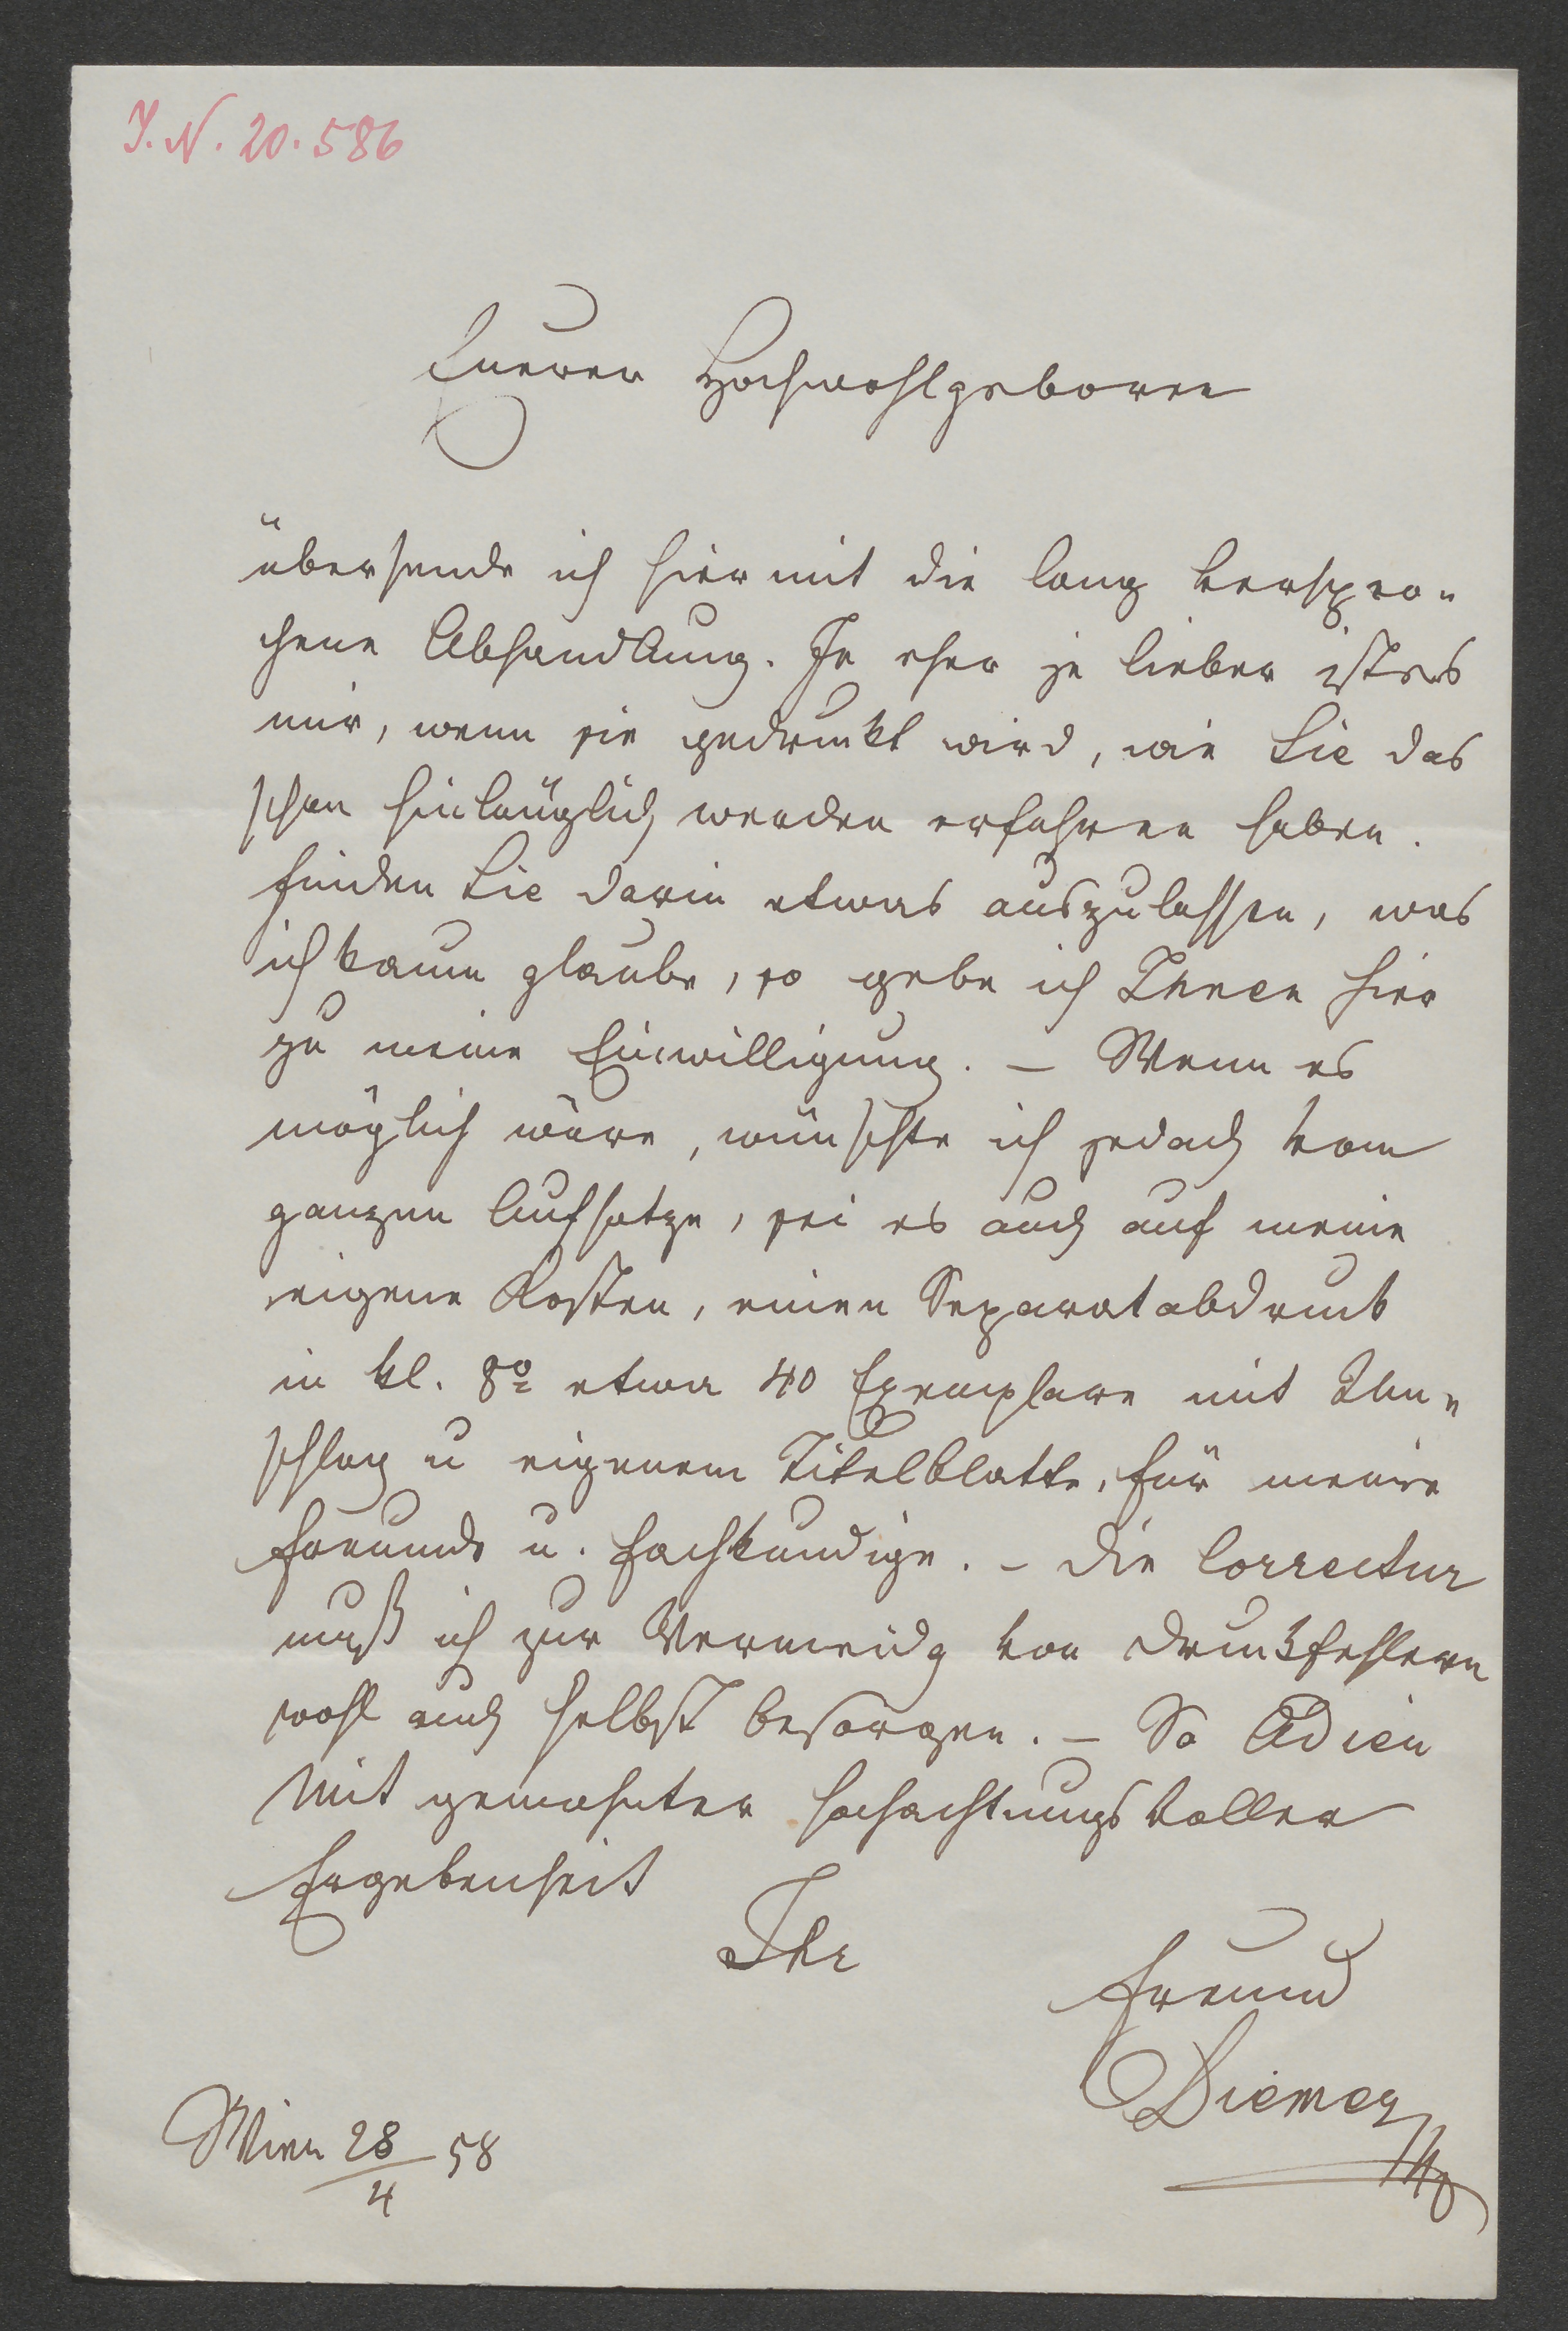 J. N. 20.586
Euerer Hochwohlgeboren
übersende ich hiermit die lang verspro-
chene Abhandlung. Je eher je lieber ist es
mir, wenn sie gedruckt wird, wie Sie das
schon hinlänglich werden erfahren haben.
Finden Sie darin etwas auszulassen, was
ich kaum glaube, so gebe ich Ihnen hier
zu meine Einwilligung. – Wenn es
möglich wäre, wünschte ich jedoch vom
ganzen Aufsatze, sei es auch auf meine
eigene Kosten, einen Separatabdruck
in kl. 8º etwa 40 Exemplare mit Um-
schlag u eigenem Titelblatte, für meine
Freunde u. Fachkundige. – Die Correctur
muß ich zur Vermeidg von Druckfehlern
wohl auch selbst besorgen. – So Adieu
Mit gewohnter hochachtungsvoller
Ergebenheit
Ihr
Freund
Diemer
Wien 28/4 58